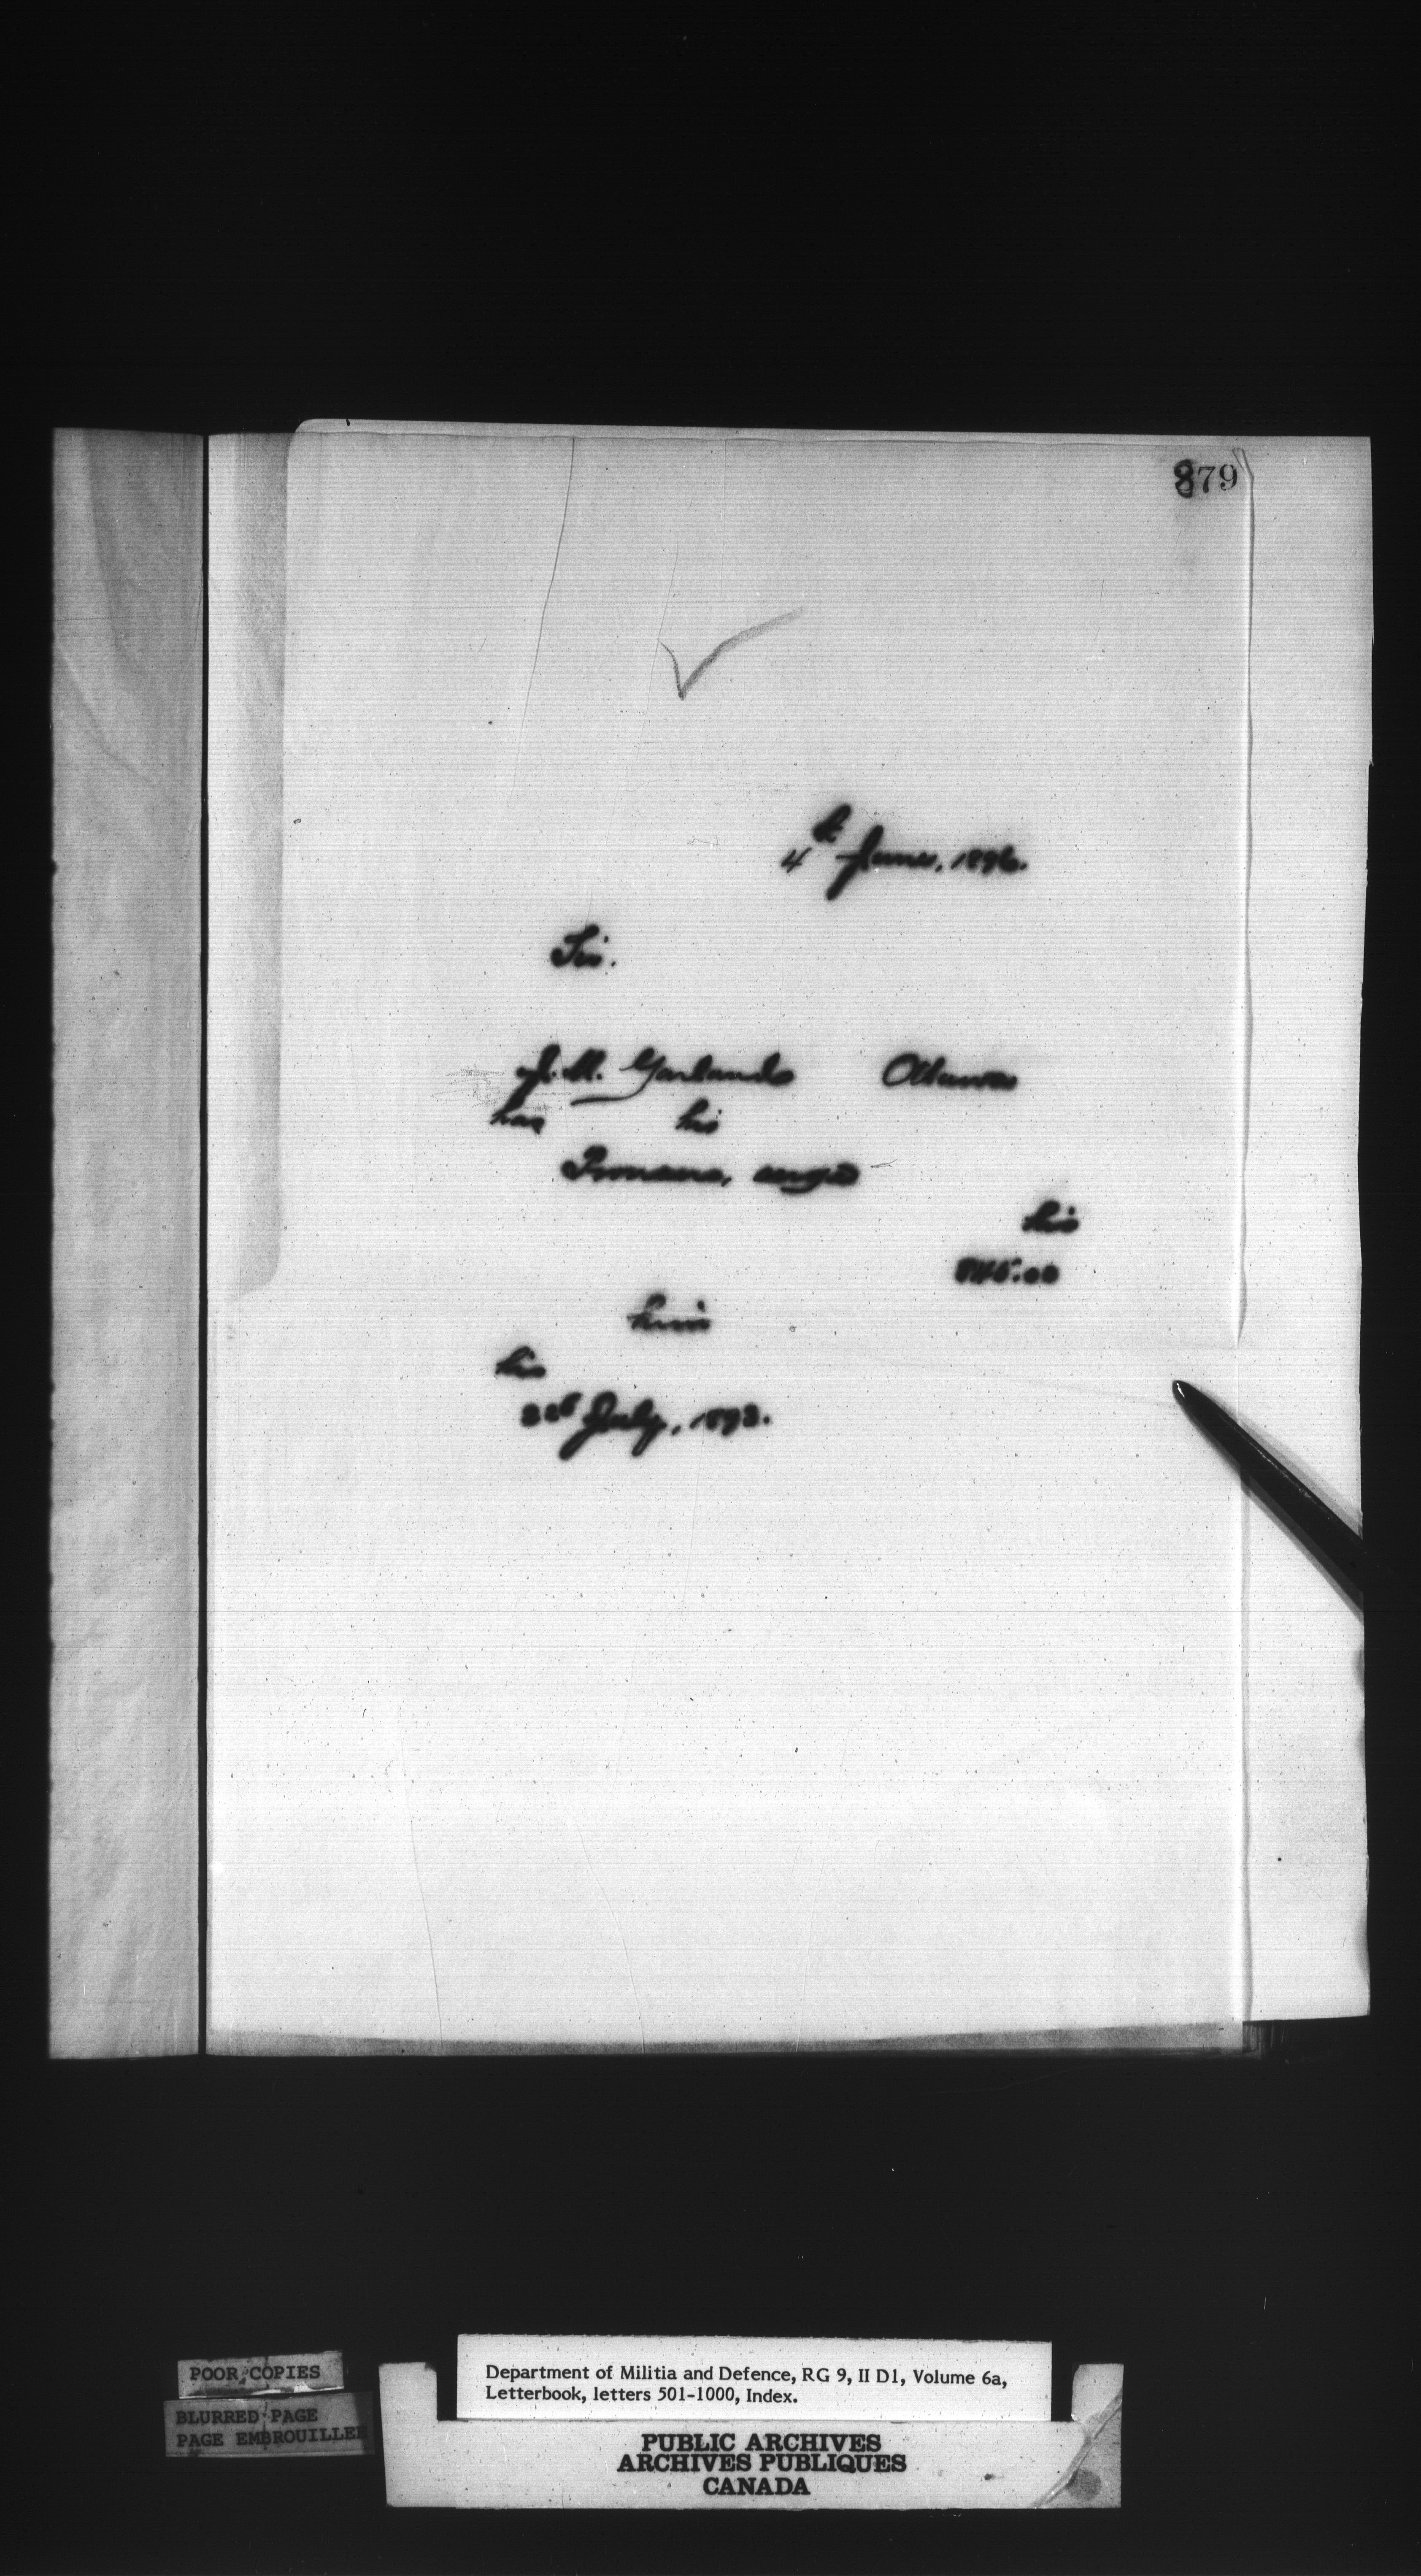 879
4th June, 1896.
Sir.
J. M. Garland Ottawa
has his
his
him
his
July, 1893.
POOR COPIES
BLURRED PAGE
PAGE EMBROUILLEE
Department of Militia and Defence, RG 9, II D1, Volume 6a,
Letterbook, letters 501-1000, Index.
PUBLIC ARCHIVES
ARCHIVES PUBLIQUES
CANADA